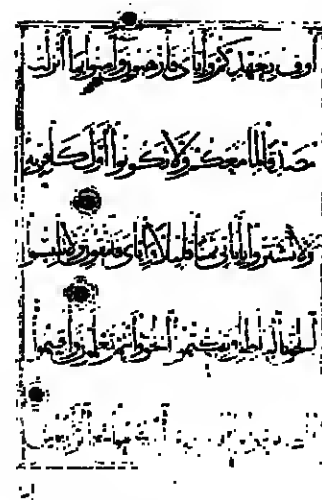 أوف بعهدكم وإياي فارهبون وآمنوا بما أنزلت
مصدقا لما معكم ولا تكونوا أول كافر به
ولا تشتروا بآياتي ثمنا قليلا وإياي فاتقون ولا تلبسوا
الحق بالباطل وتكتموا الحق وأنتم تعلمون وأقيموا